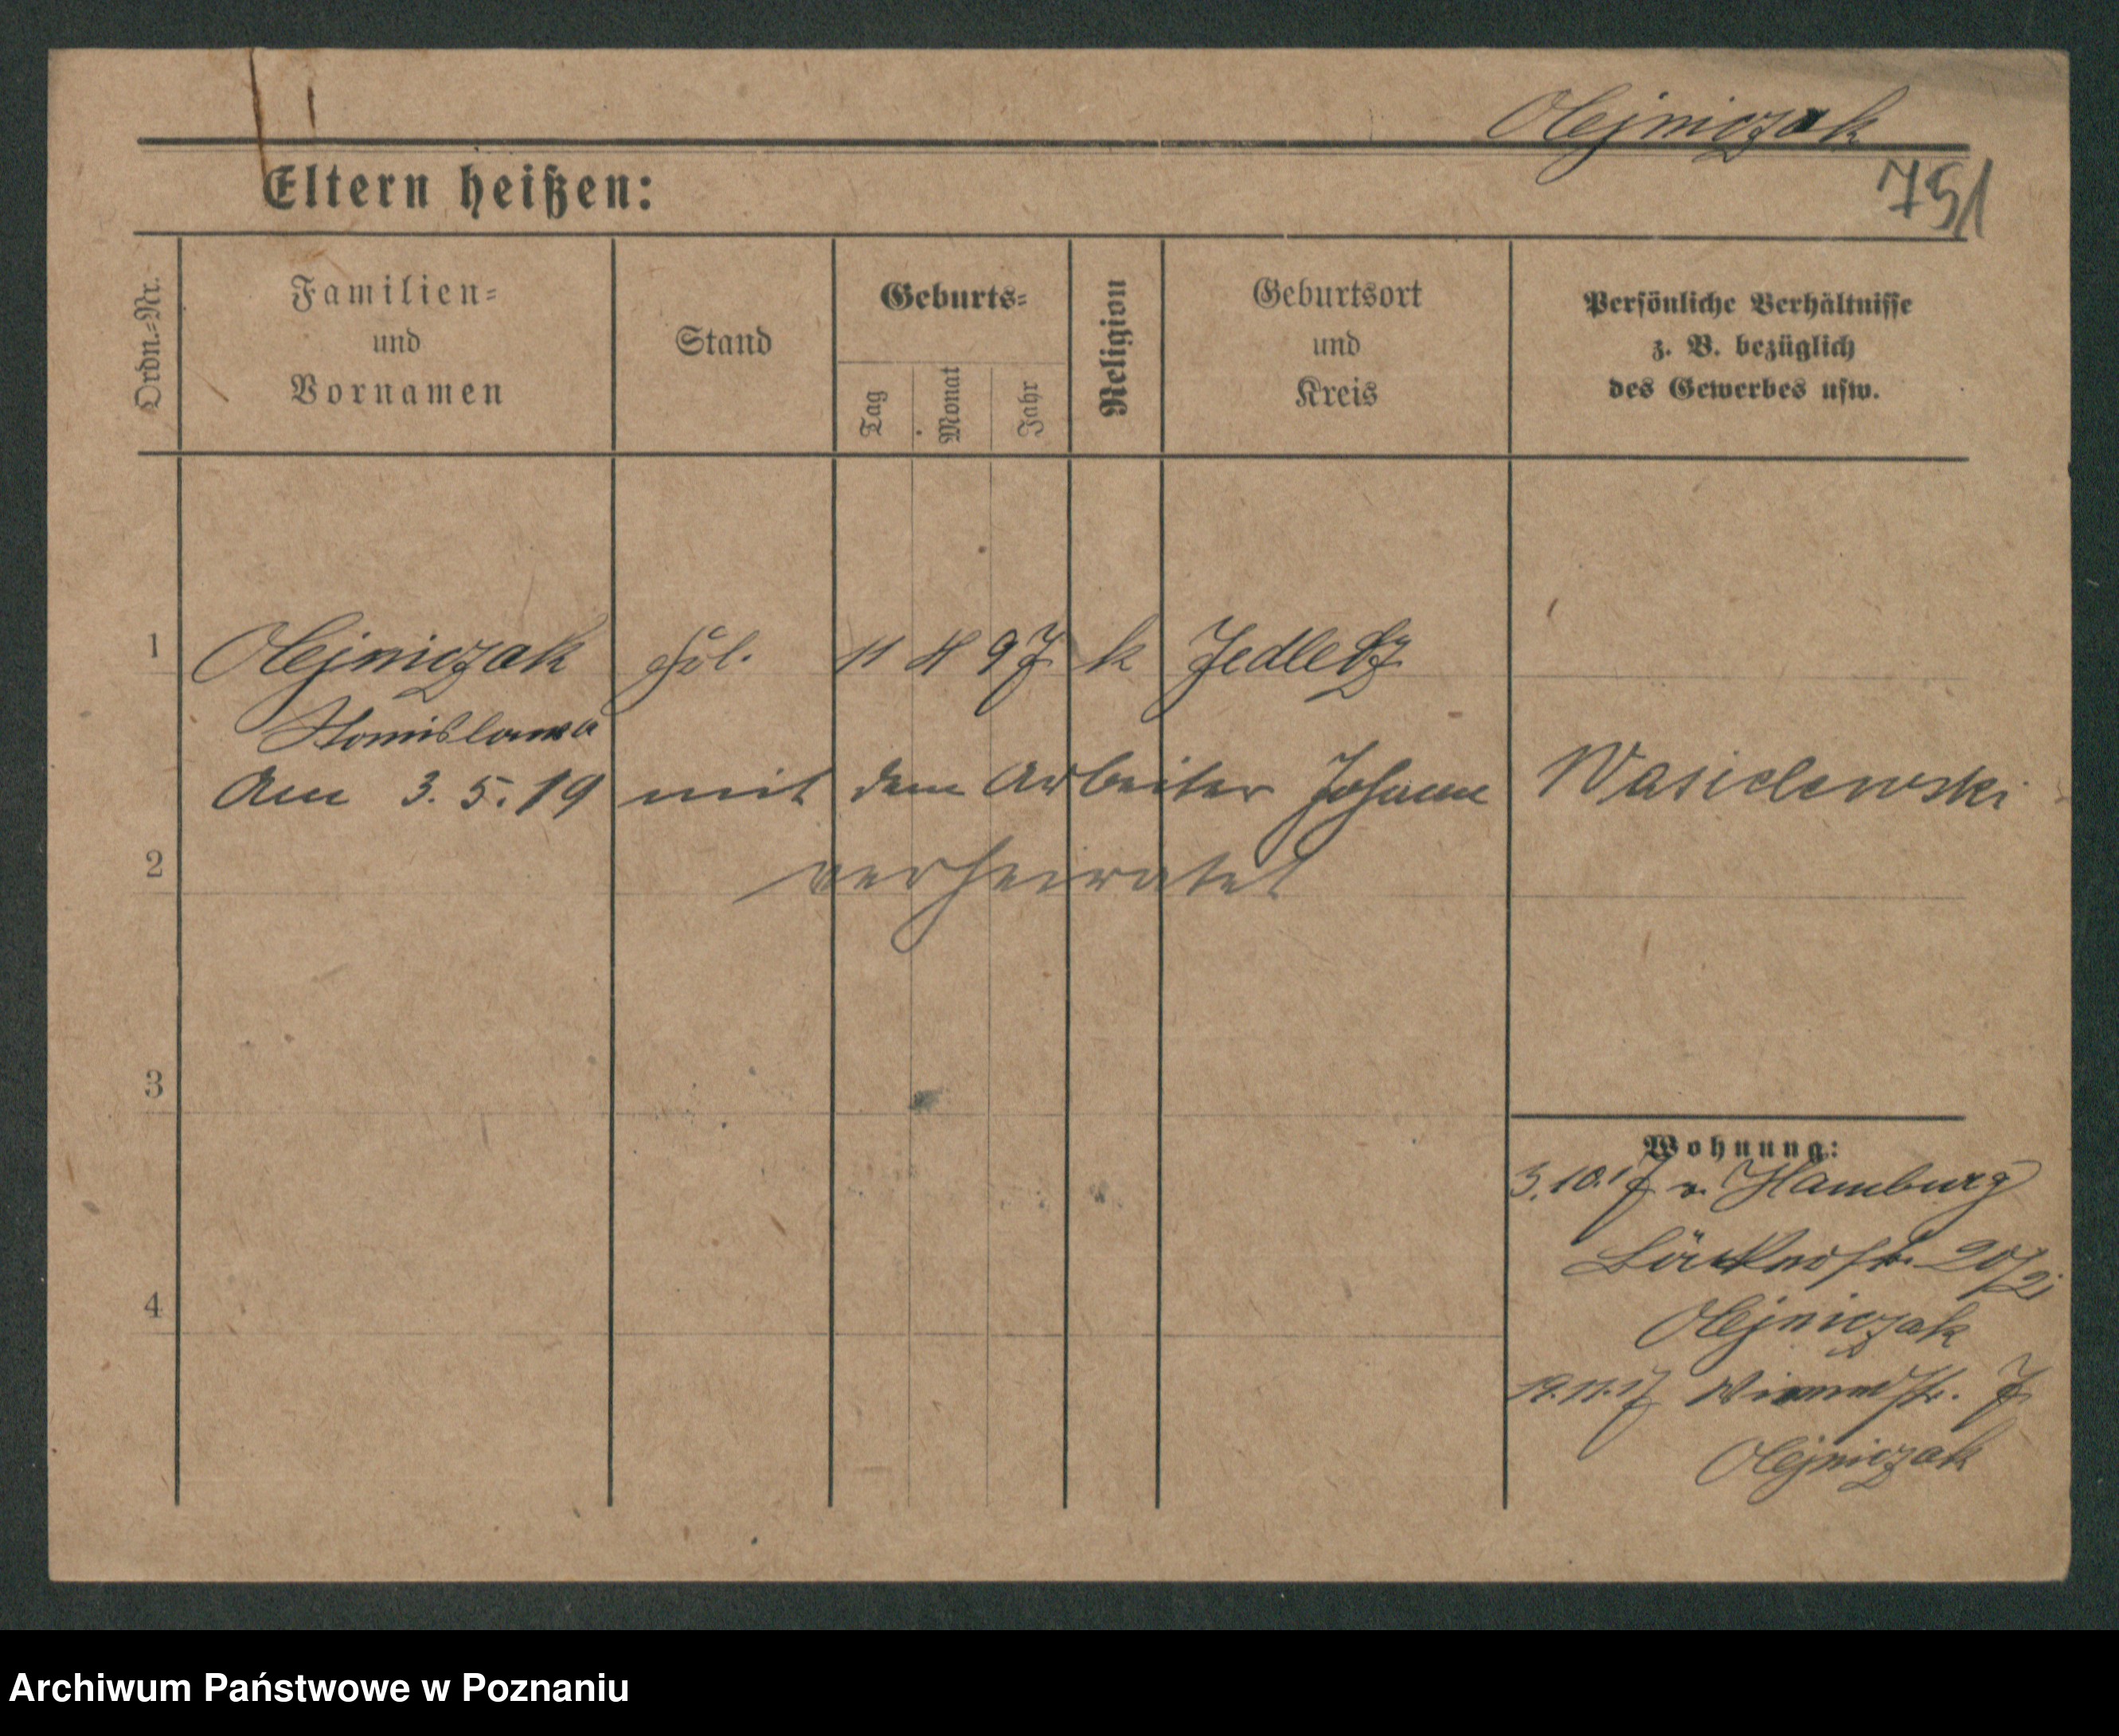 Olejniczak
751
Eltern heißen:
Ordn.-Nr.
Familien-
und
Vornamen
Stand
Geburts-
Tag
Monat
Jahr
Religion
Geburtsort
und
Kreis
Persönliche Verhältnisse
z. B. bezüglich
des Gewerbes usw.
1 Olejniczak 11 4 97 k Jedletz
Stanislawa
Am 3.5.19 mit dem Arbeiter Johann Wasielewski
2 verheiratet
3
4
Wohnung:
3.10.17 v. Hamburg
20/21
Olejniczak
19.11.17 7
Olejniczak
Archiwum Państwowe w Poznaniu